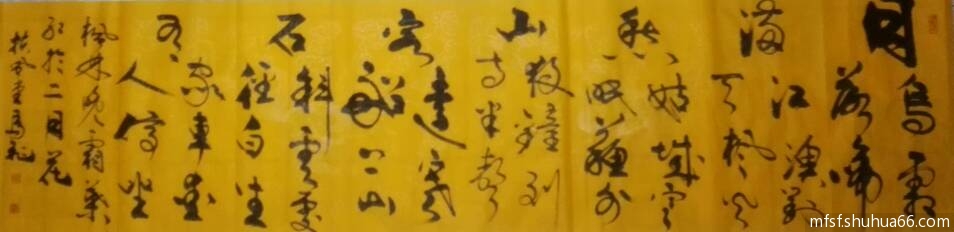 月落乌啼霜
满天江枫渔火对
愁眠姑苏城外寒
山寺夜半钟声到
客船远上寒山
石径斜白云生处
有人家停车坐爱
枫林晚霜葉
红於二月花
mfsf.shuhua66.com